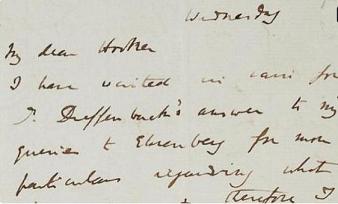 Wednesday
My dear Hooker
I have waited in vain for
D. Dieffenbach's answer to my
queries to Ehrenberg for more
particulars regarding what
therefore I